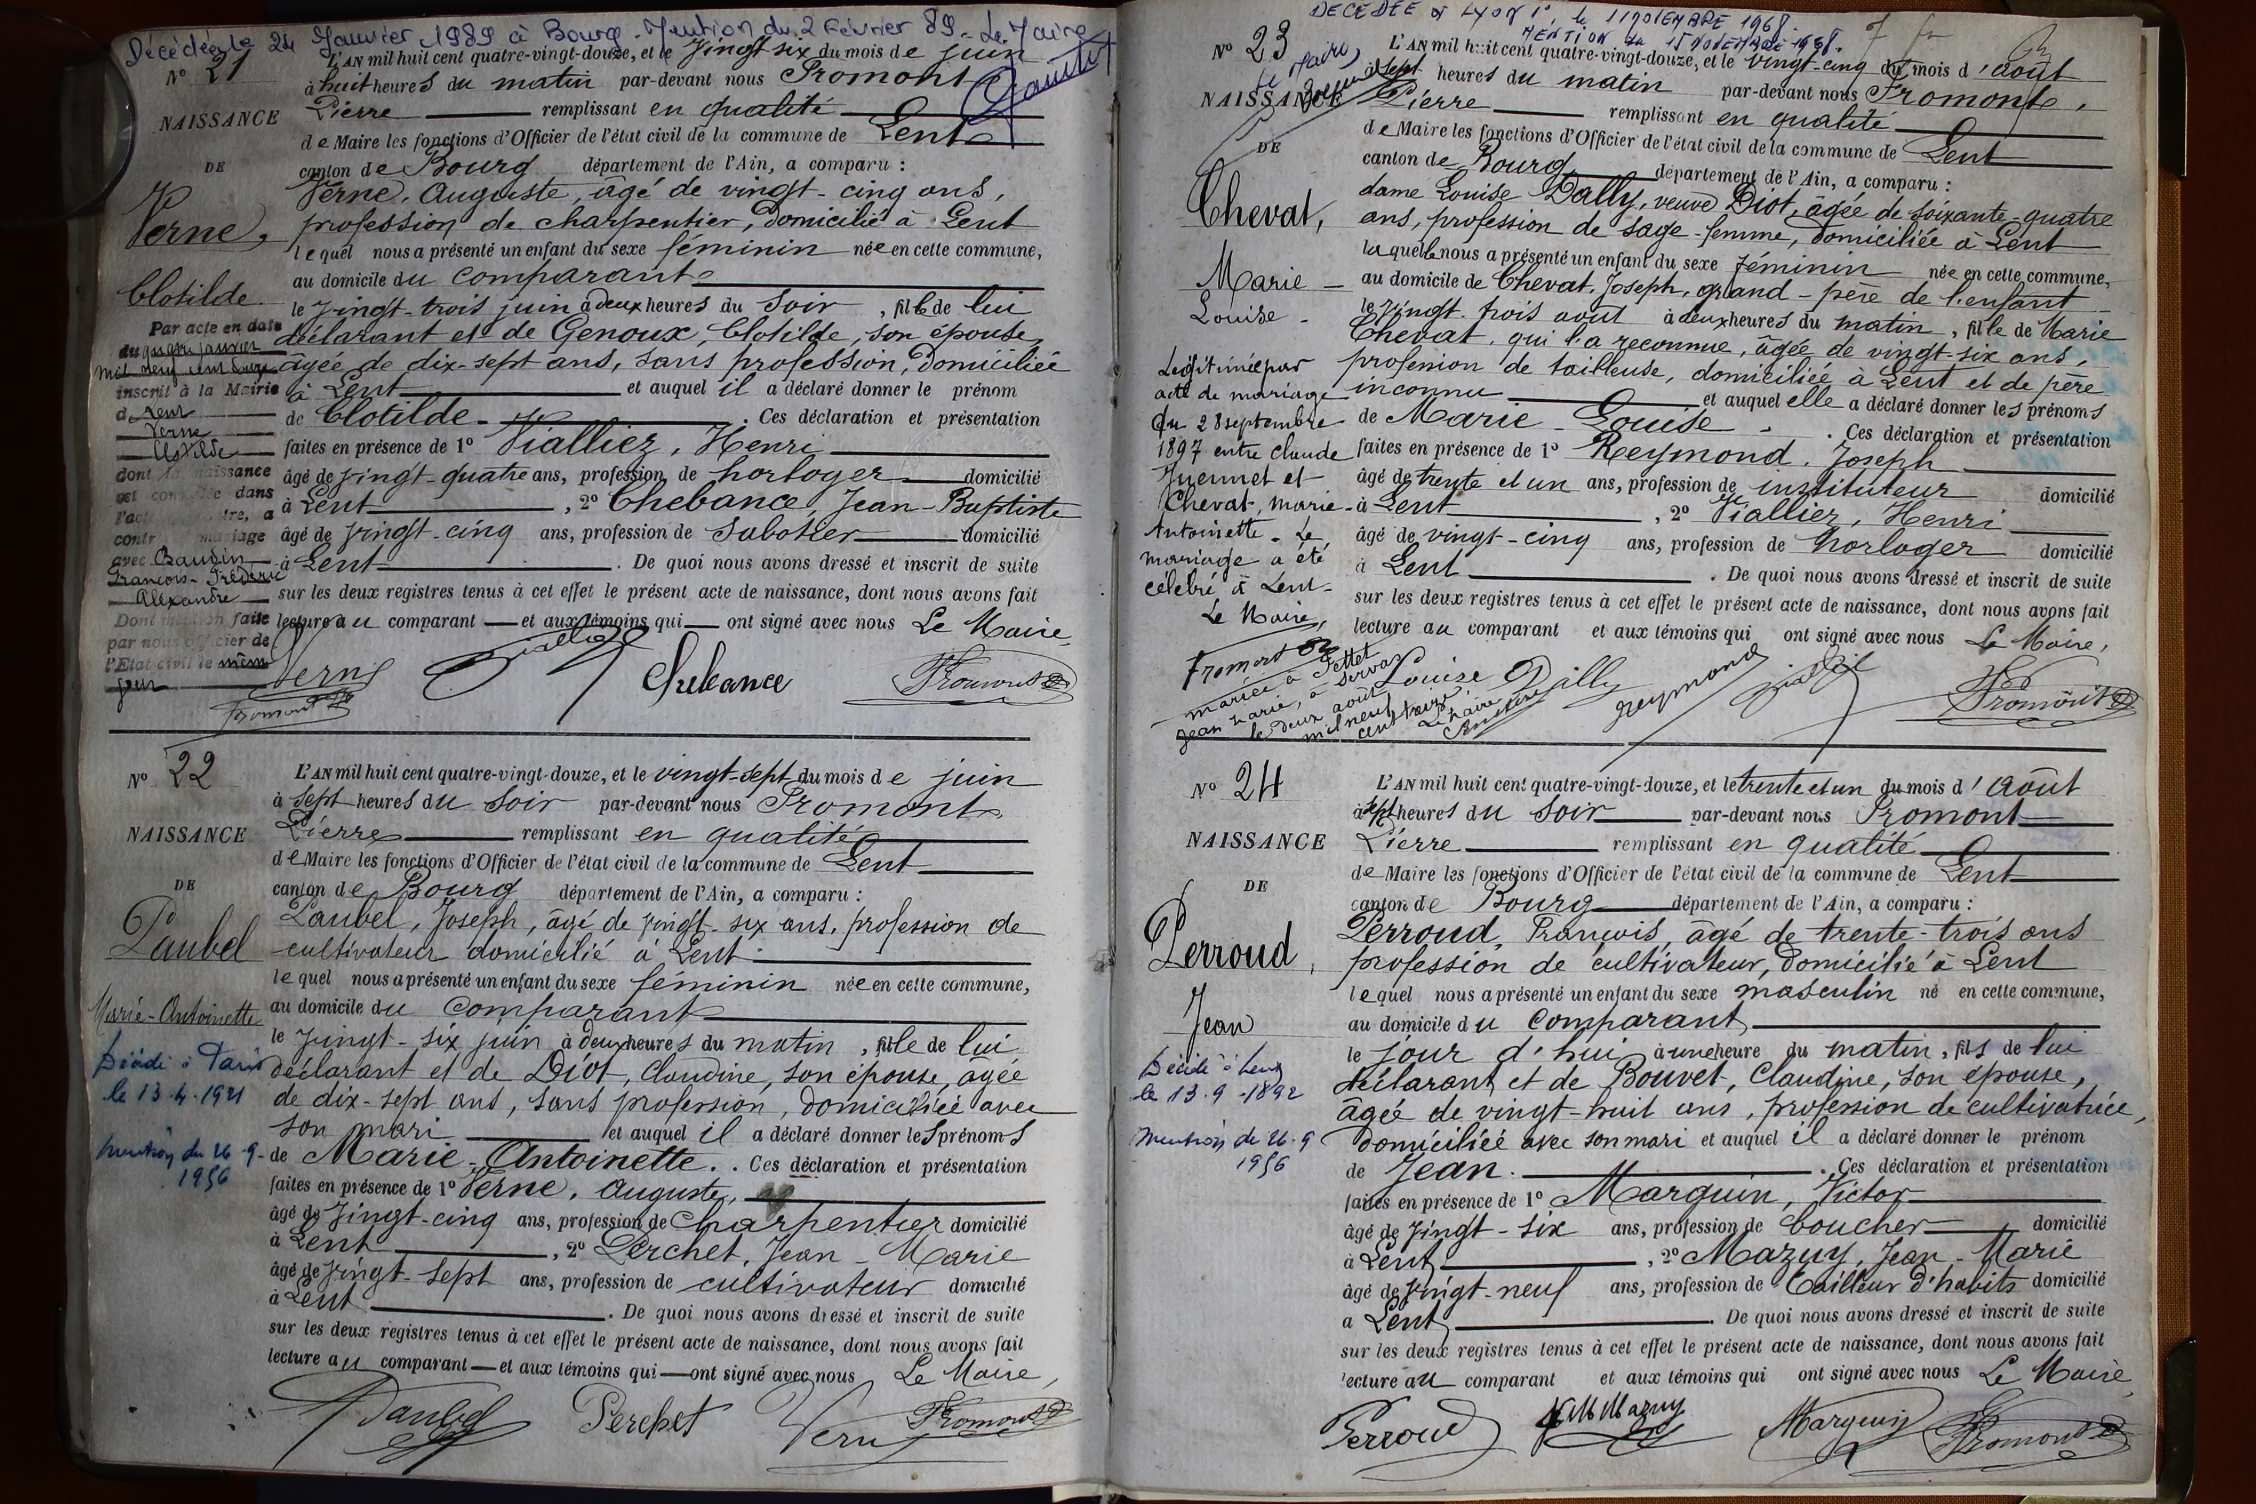 Décédée le 24 Janvier 1989 à Bourg. Mention du 2 Février 89. Le Maire
N° 21
NAISSANCE
DE
Verne,
Clotilde
Par acte en date
du quatre janvier
mil neuf cent douze
inscrit à la Mairie
de Lent
Verne
Clotilde
dont la naissance
est constatée dans
l'acte contre, a
contracté mariage
avec Baudin
François-Frédéric
Alexandre
Dont mention faite
par nous officier de
l'Etat civil le même
jour
L'AN mil huit cent quatre-vingt-douze, et le vingt six du mois de juin
à huit heures du matin par-devant nous Fromont
Pierre remplissant en qualité
de Maire les fonctions d'Officier de l'état civil de la commune de Lent
canton de Bourg département de l'Ain, a comparu :
Verne, Auguste, âgé de vingt-cinq ans,
profession de charpentier, domicilié à Lent
lequel nous a présenté un enfant du sexe féminin née en cette commune,
au domicile du comparant
le vingt-trois juin à deux heures du soir, fille de lui
déclarant et de Genoux, Clotilde, son épouse,
âgée de dix-sept ans, sans profession, domiciliée
à Lent et auquel il a déclaré donner le prénom
de Clotilde. Ces déclaration et présentation
faites en présence de 1° Viallier, Henri
âgé de vingt-quatre ans, profession de horloger domicilié
à Lent, 2° Chebance, Jean-Baptiste
âgé de vingt-cinq ans, profession de sabotier domicilié
à Lent. De quoi nous avons dressé et inscrit de suite
sur les deux registres tenus à cet effet le présent acte de naissance, dont nous avons fait
lecture au comparant et aux témoins qui ont signé avec nous Le Maire
Verne Viallier Chebance Fromont
Fromont
N° 22
NAISSANCE
DE
Paubel
Marie-Antoinette
Décédé à Paris
le 13.4.1921
mention du 26-9-
1956
L'AN mil huit cent quatre-vingt-douze, et le vingt-sept du mois de juin
à sept heures du soir par-devant nous Fromont
Pierre remplissant en qualité
de Maire les fonctions d'Officier de l'état civil de la commune de Lent
canton de Bourg département de l'Ain, a comparu :
Paubel, Joseph, âgé de vingt-six ans, profession de
cultivateur domicilié à Lent
lequel nous a présenté un enfant du sexe féminin née en cette commune,
au domicile du comparant
le vingt-six juin à deux heures du matin, fille de lui
déclarant et de Diot, Claudine, son épouse, agée
de dix-sept ans, sans profession, domiciliée avec
son mari et auquel il a déclaré donner les prénoms
de Marie-Antoinette. Ces déclaration et présentation
faites en présence de 1° Verne, Auguste,
âgé de vingt-cinq ans, profession de charpentier domicilié
à Lent, 2° Perchet, Jean-Marie
âgé de vingt-sept ans, profession de cultivateur domicilié
à Lent. De quoi nous avons dressé et inscrit de suite
sur les deux registres tenus à cet effet le présent acte de naissance, dont nous avons fait
lecture au comparant et aux témoins qui ont signé avec nous Le Maire,
Paubel Perchet Verne Fromont
DECEDÉE à LYON 1°, le 11 NOVEMBRE 1968.
MENTION du 15 NOVEMBRE 1968.
Le Maire,
N° 23
NAISSANCE
DE
Chevat,
Marie-
Louise-
Légitimée par
acte de mariage
du 28 septembre
1897 entre Claude
Juennet et
Chevat, Marie-
Antoinette. Le
mariage a été
célébré à Lent-
Le Maire,
Fromont
mariée à Pettet
Jean Marie, à Servas
le deux août
mil neuf
cent trois
Le Maire
L'AN mil huit cent quatre-vingt-douze, et le vingt-cinq du mois d'août
à sept heures du matin par-devant nous Fromont,
Pierre remplissant en qualité
de Maire les fonctions d'Officier de l'état civil de la commune de Lent
canton de Bourg département de l'Ain, a comparu :
dame Louise Dally, veuve Diot, âgée de soixante-quatre
ans, profession de sage-femme, domiciliée à Lent
laquelle nous a présenté un enfant du sexe féminin née en cette commune,
au domicile de Chevat, Joseph, grand-père de l'enfant
le vingt-trois août à deux heures du matin, fille de Marie
Chevat, qui l'a reconnue, âgée de vingt-six ans,
profession de tailleuse, domiciliée à Lent et de père
inconnu et auquel elle a déclaré donner les prénoms
de Marie-Louise. Ces déclaration et présentation
faites en présence de 1° Reymond, Joseph
âgé de trente et un ans, profession de instituteur domicilié
à Lent, 2° Viallier, Henri
âgé de vingt-cinq ans, profession de horloger domicilié
à Lent. De quoi nous avons dressé et inscrit de suite
sur les deux registres tenus à cet effet le présent acte de naissance, dont nous avons fait
lecture au comparant et aux témoins qui ont signé avec nous Le Maire,
Louise Dally Reymond Viallier Fromont
N° 24
NAISSANCE
DE
Perroud,
Jean
Décédé à Lent
le 13.9-1892
mention du 26.9
1956
L'AN mil huit cent quatre-vingt-douze, et le trente et un du mois d'août
à sept heures du soir par-devant nous Fromont
Pierre remplissant en qualité
de Maire les fonctions d'Officier de l'état civil de la commune de Lent
canton de Bourg département de l'Ain, a comparu :
Perroud, François, âgé de trente-trois ans
profession de cultivateur, domicilié à Lent
lequel nous a présenté un enfant du sexe masculin né en cette commune,
au domicile du comparant
le jour d'hui à une heure du matin, fils de lui
déclarant et de Bouvet, Claudine, son épouse,
âgée de vingt-huit ans, profession de cultivatrice,
domiciliée avec son mari et auquel il a déclaré donner le prénom
de Jean. Ces déclaration et présentation
faites en présence de 1° Marguin, Victor
âgé de vingt-six ans, profession de boucher domicilié
à Lent, 2° Mazuy, Jean-Marie
âgé de vingt-neuf ans, profession de tailleur d'habits domicilié
a Lent. De quoi nous avons dressé et inscrit de suite
sur les deux registres tenus à cet effet le présent acte de naissance, dont nous avons fait
lecture au comparant et aux témoins qui ont signé avec nous Le Maire,
Perroud Mazuy Marguin Fromont